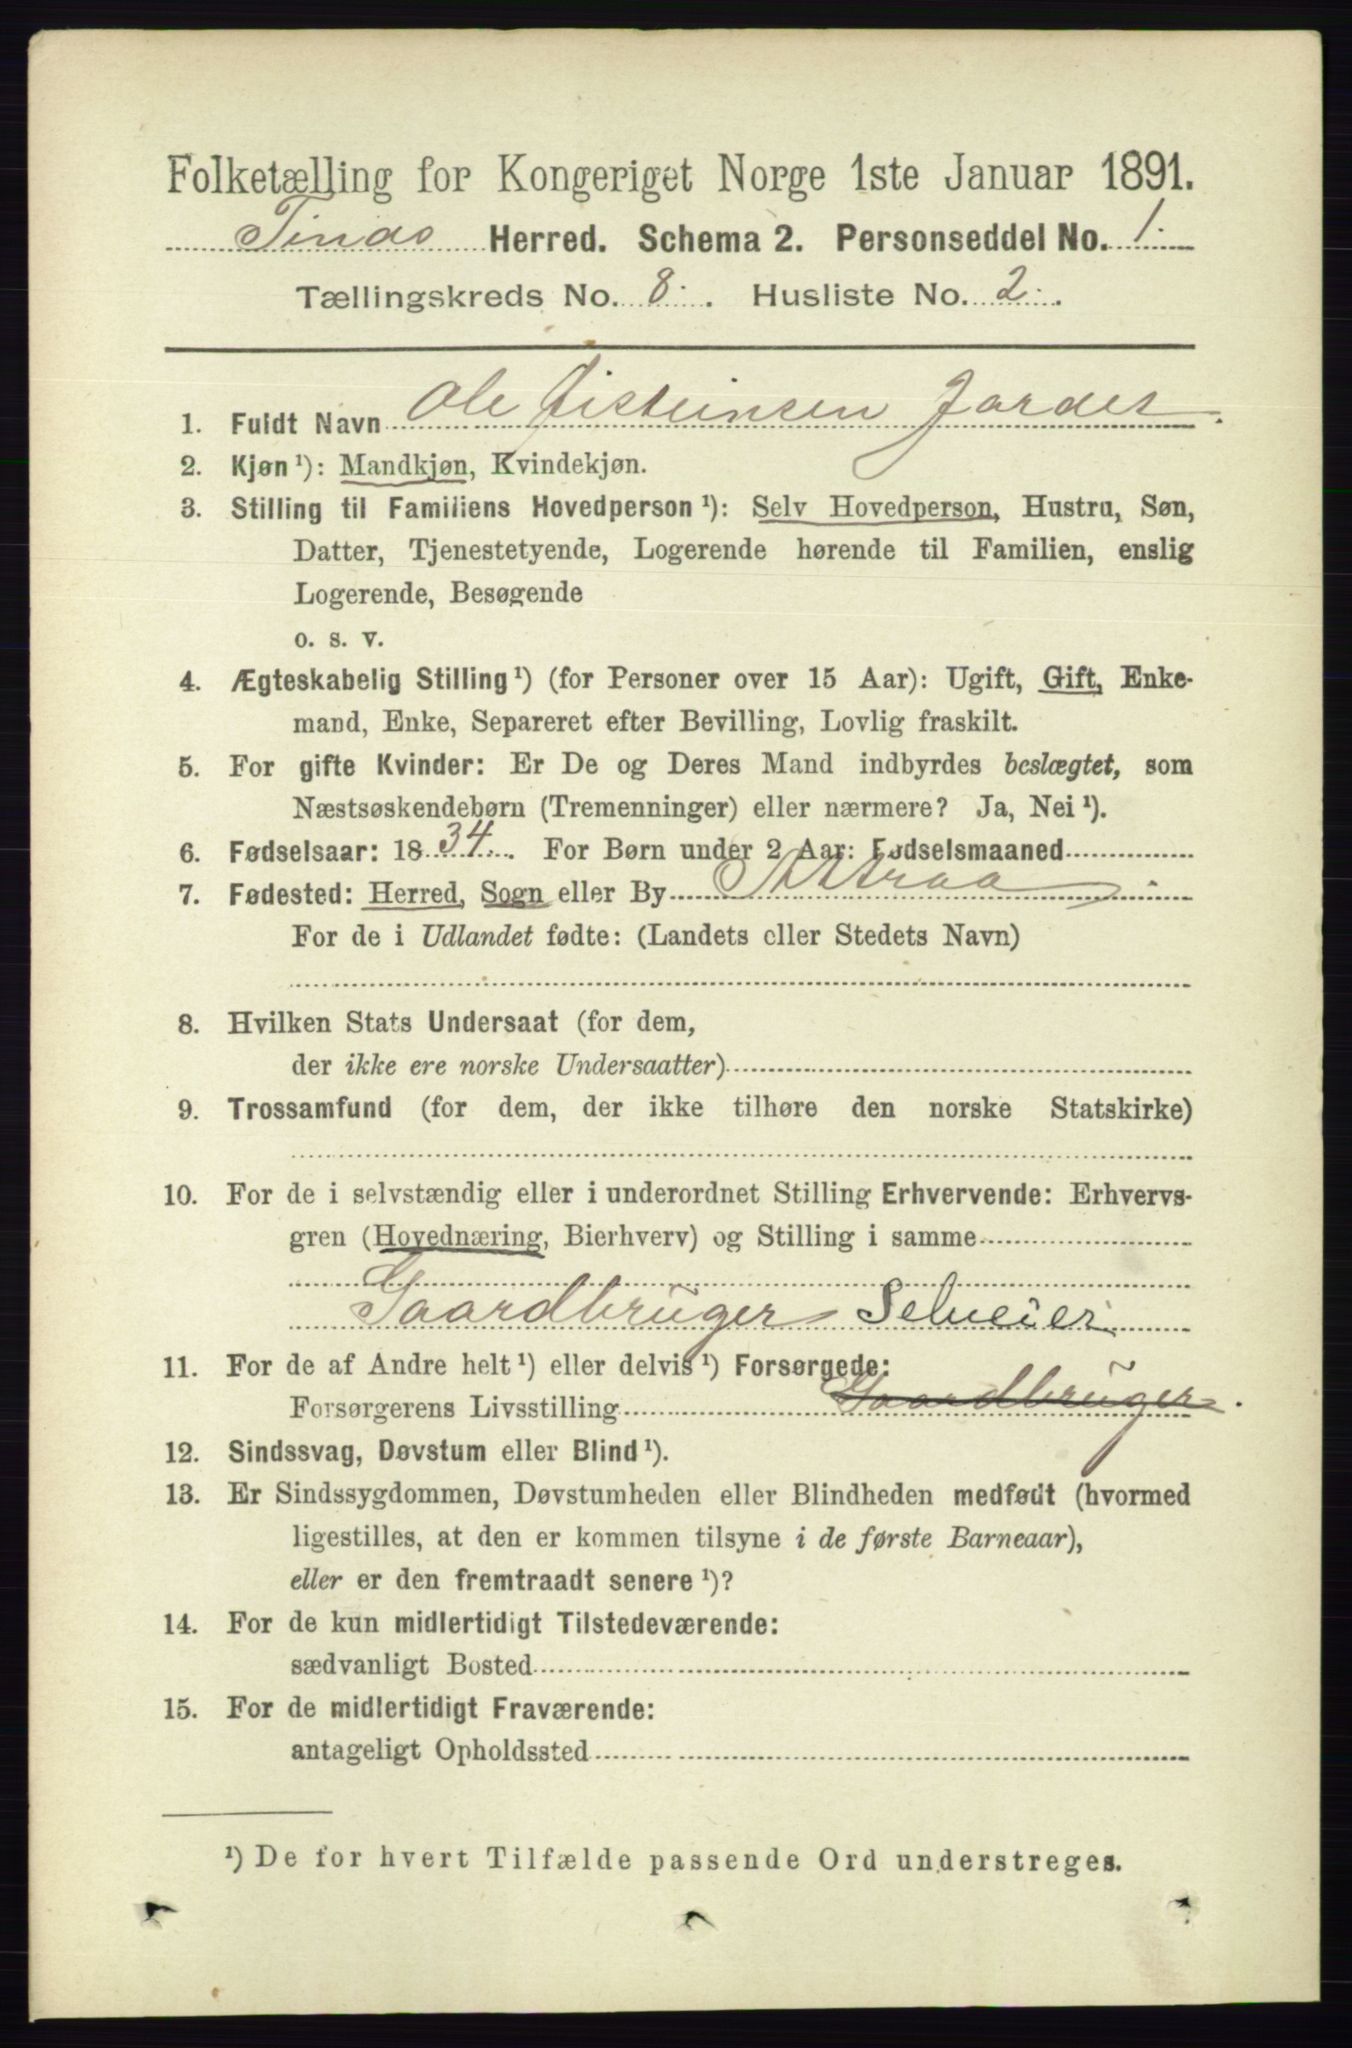 Folketælling for Kongeriget Norge 1ste Januar 1891.
Tinds Herred. Schema 2. Personseddel No. 1.
Tællingskreds No. 8. Husliste No. 2.
1. Fuldt Navn Ole Gisteinsen Jordet.
2. Kjøn ¹): Mandkjøn, Kvindekjøn.
3. Stilling til Familiens Hovedperson ¹): Selv Hovedperson, Hustru, Søn,
Datter, Tjenestetyende, Logerende hørende til Familien, enslig
Logerende, Besøgende
o. s. v.
4. Ægteskabelig Stilling ¹) (for Personer over 15 Aar): Ugift, Gift, Enke-
mand, Enke, Separeret efter Bevilling, Lovlig fraskilt.
5. For gifte Kvinder: Er De og Deres Mand indbyrdes beslægtet, som
Næstsøskendebørn (Tremenninger) eller nærmere? Ja, Nei ¹).
6. Fødselsaar: 1834. For Børn under 2 Aar: Fødselsmaaned
7. Fødested: Herred, Sogn eller By Attraa.
For de i Udlandet fødte: (Landets eller Stedets Navn)
8. Hvilken Stats Undersaat (for dem,
der ikke ere norske Undersaatter)
9. Trossamfund (for dem, der ikke tilhøre den norske Statskirke)
10. For de i selvstændig eller i underordnet Stilling Erhvervende: Erhvervs-
gren (Hovednæring, Bierhverv) og Stilling i samme
Gaardbruger Selveier
11. For de af Andre helt ¹) eller delvis ¹) Forsørgede:
Forsørgerens Livsstilling Gaardbruger.
12. Sindssvag, Døvstum eller Blind ¹).
13. Er Sindssygdommen, Døvstumheden eller Blindheden medfødt (hvormed
ligestilles, at den er kommen tilsyne i de første Barneaar),
eller er den fremtraadt senere ¹)?
14. For de kun midlertidigt Tilstedeværende:
sædvanligt Bosted
15. For de midlertidigt Fraværende:
antageligt Opholdssted
¹) De for hvert Tilfælde passende Ord understreges.